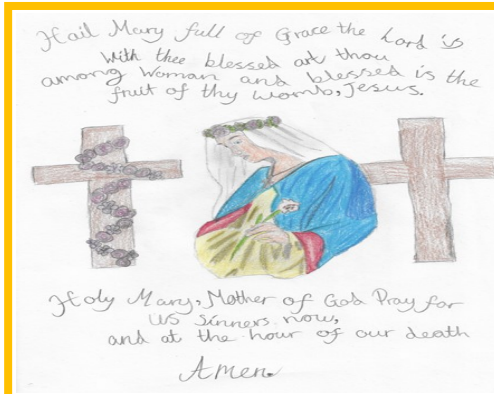 Hail Mary full of Grace the Lord is
With thee blessed art thou
among Woman and blessed is the
fruit of thy womb, Jesus.
Holy Mary, Mother of God Pray for
us sinners now,
and at the hour of our death
Amen.